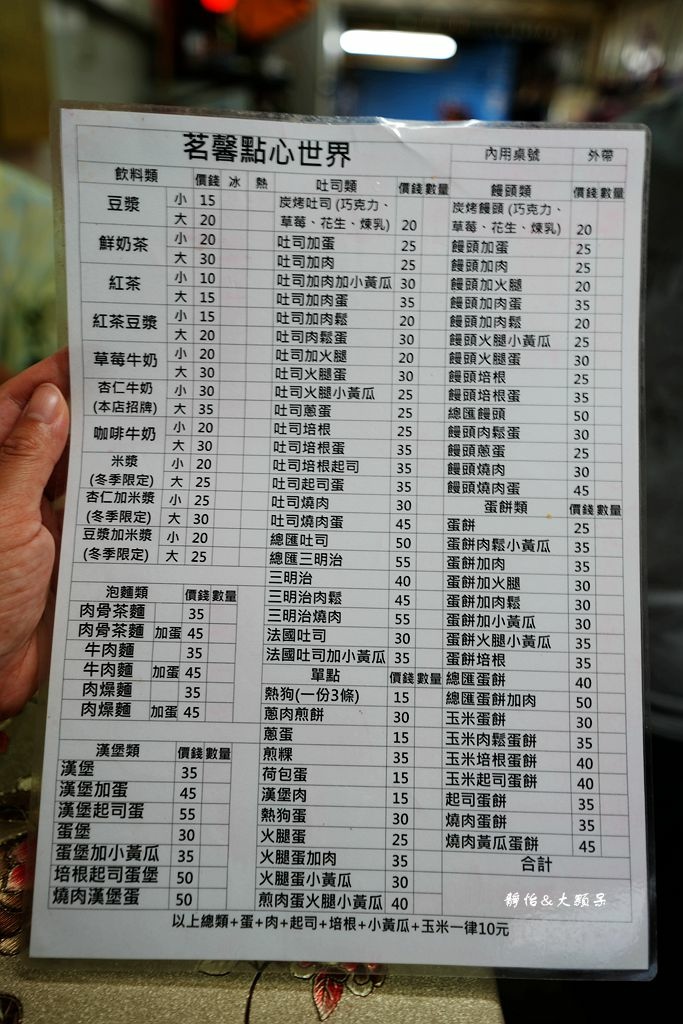 茗馨點心世界
內用桌號 外帶
飲料類 價錢 冰 熱
豆漿 小 15
大 20
鮮奶茶 小 20
大 30
紅茶 小 10
大 15
紅茶豆漿 小 15
大 20
草莓牛奶 小 20
大 30
杏仁牛奶 (本店招牌) 小 30
大 35
咖啡牛奶 小 20
大 30
米漿 (冬季限定) 小 20
大 25
杏仁加米漿 (冬季限定) 小 25
大 30
豆漿加米漿 (冬季限定) 小 20
大 25
泡麵類 價錢 數量
肉骨茶麵 35
肉骨茶麵 加蛋 45
牛肉麵 35
牛肉麵 加蛋 45
肉燥麵 35
肉燥麵 加蛋 45
漢堡類 價錢 數量
漢堡 35
漢堡加蛋 45
漢堡起司蛋 55
蛋堡 30
蛋堡加小黃瓜 35
培根起司蛋堡 50
燒肉漢堡蛋 50
吐司類 價錢 數量
炭烤吐司 (巧克力、
草莓、花生、煉乳) 20
吐司加蛋 25
吐司加肉 25
吐司加肉加小黃瓜 30
吐司加肉蛋 35
吐司加肉鬆 20
吐司肉鬆蛋 30
吐司加火腿 20
吐司火腿蛋 30
吐司火腿小黃瓜 25
吐司蔥蛋 25
吐司培根 25
吐司培根蛋 35
吐司培根起司 35
吐司起司蛋 35
吐司燒肉 30
吐司燒肉蛋 45
總匯吐司 50
總匯三明治 55
三明治 40
三明治肉鬆 45
三明治燒肉 55
法國吐司 30
法國吐司加小黃瓜 35
單點 價錢 數量
熱狗(一份3條) 15
蔥肉煎餅 30
蔥蛋 15
煎粿 35
荷包蛋 15
漢堡肉 15
熱狗蛋 30
火腿蛋 25
火腿蛋加肉 35
火腿蛋小黃瓜 30
煎肉蛋火腿小黃瓜 40
饅頭類 價錢 數量
炭烤饅頭 (巧克力、
草莓、花生、煉乳) 20
饅頭加蛋 25
饅頭加肉 25
饅頭加火腿 20
饅頭加肉蛋 35
饅頭加肉鬆 20
饅頭火腿小黃瓜 25
饅頭火腿蛋 30
饅頭培根 25
饅頭培根蛋 35
總匯饅頭 50
饅頭肉鬆蛋 30
饅頭蔥蛋 25
饅頭燒肉 30
饅頭燒肉蛋 45
蛋餅類 價錢 數量
蛋餅 25
蛋餅肉鬆小黃瓜 35
蛋餅加肉 35
蛋餅加火腿 30
蛋餅加肉鬆 30
蛋餅加小黃瓜 30
蛋餅火腿小黃瓜 35
蛋餅培根 35
總匯蛋餅 40
總匯蛋餅加肉 50
玉米蛋餅 30
玉米肉鬆蛋餅 35
玉米培根蛋餅 40
玉米起司蛋餅 40
起司蛋餅 35
燒肉蛋餅 35
燒肉黃瓜蛋餅 45
合計
以上總類+蛋+肉+起司+培根+小黃瓜+玉米一律10元
靜怡&大顆呆